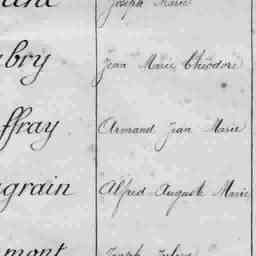 Joseph Marie
bry Jean Marie Théodore
ffray Armand Jean Marie
grain Alfred Auguste Marie
mont Joseph Jules